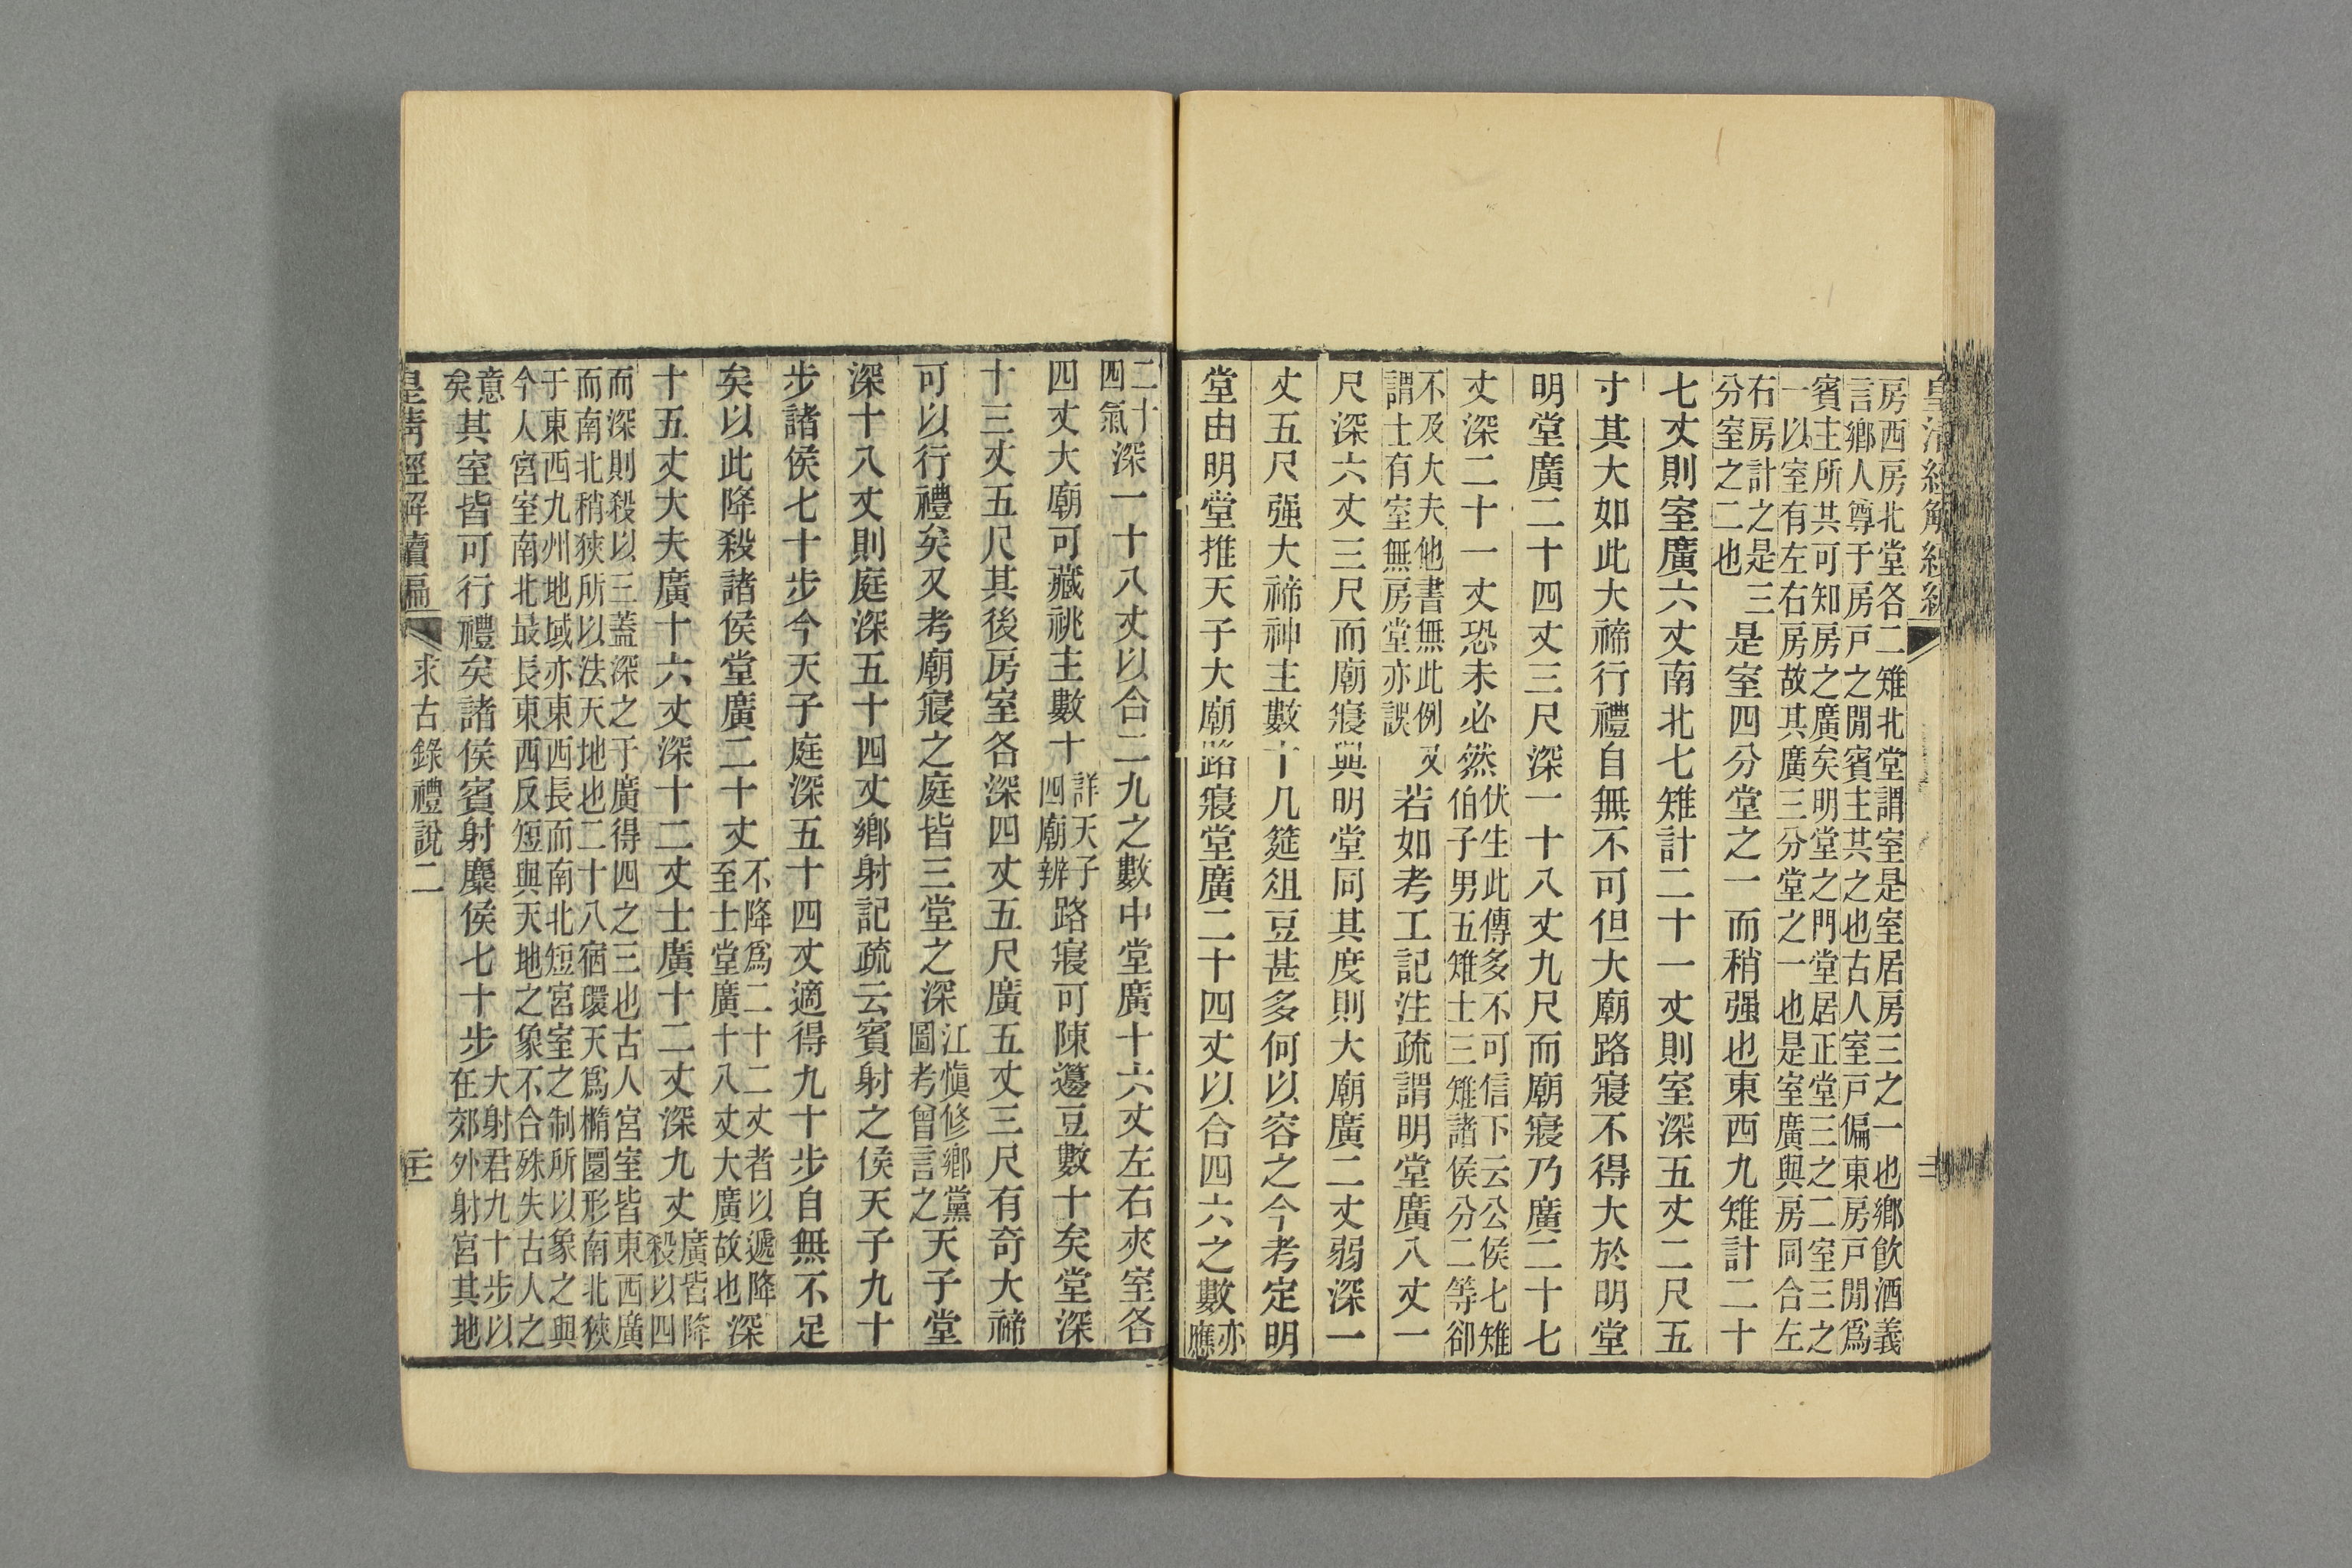 房西房北堂各二雉北堂謂室是室居房三之一也鄉飮酒義
言鄉人尊于房戶之閒賓主其之也古人室戶偏東房戶閒爲
賓主所共可知房之廣矣明堂之門堂居正堂三之二室三之
一以室有左右房故其廣三分堂之一也是室廣與房同合左
右房計之是三
分室之二也
是室四分堂之一而稍强也東西九雉計二十
七丈則室廣六丈南北七雉計二十一丈則室深五丈二尺五
寸其大如此大禘行禮自無不可但大廟路寢不得大於明堂
明堂廣二十四丈三尺深一十八丈九尺而廟寢乃廣二十七
丈深二十一丈恐未必然
伏生此傳多不可信下云公侯七雉
伯子男五雉士三雉諸侯分二等卻
不及大夫他書無此例又
謂士有室無房堂亦誤
若如考工記注疏謂明堂廣八丈一
尺深六丈三尺而廟寢與明堂同其度則大廟廣二丈弱深一
丈五尺强大禘神主數十几筵俎豆甚多何以容之今考定明
堂由明堂推天子大廟路寢堂廣二十四丈以合四六之數
亦
應
二十
四氣
深一十八丈以合二九之數中堂廣十六丈左右夾室各
四丈大廟可藏祧主數十
詳天子
四廟辨
路寢可陳籩豆數十矣堂深
十三丈五尺其後房室各深四丈五尺廣五丈三尺有奇大禘
可以行禮矣又考廟寢之庭皆三堂之深
江愼修鄉黨
圖考曾言之
天子堂
深十八丈則庭深五十四丈鄉射記疏云賓射之侯天子九十
步諸侯七十步今天子庭深五十四丈適得九十步自無不足
矣以此降殺諸侯堂廣二十丈
不降爲二十二丈者以遞降
至士堂廣十八丈大廣故也
深
十五丈大夫廣十六丈深十二丈士廣十二丈深九丈
廣皆降
殺以四
而深則殺以三蓋深之于廣得四之三也古人宮室皆東西廣
而南北稍狹所以法天地也二十八宿環天爲橢圜形南北狹
于東西九州地域亦東西長而南北短宮室之制所以象之與
今人宮室南北最長東西反短與天地之象不合殊失古人之
意
矣
其室皆可行禮矣諸侯賓射麋侯七十步
大射君九十步以
在郊外射宮其地
皇清經解續編
求古錄禮說二